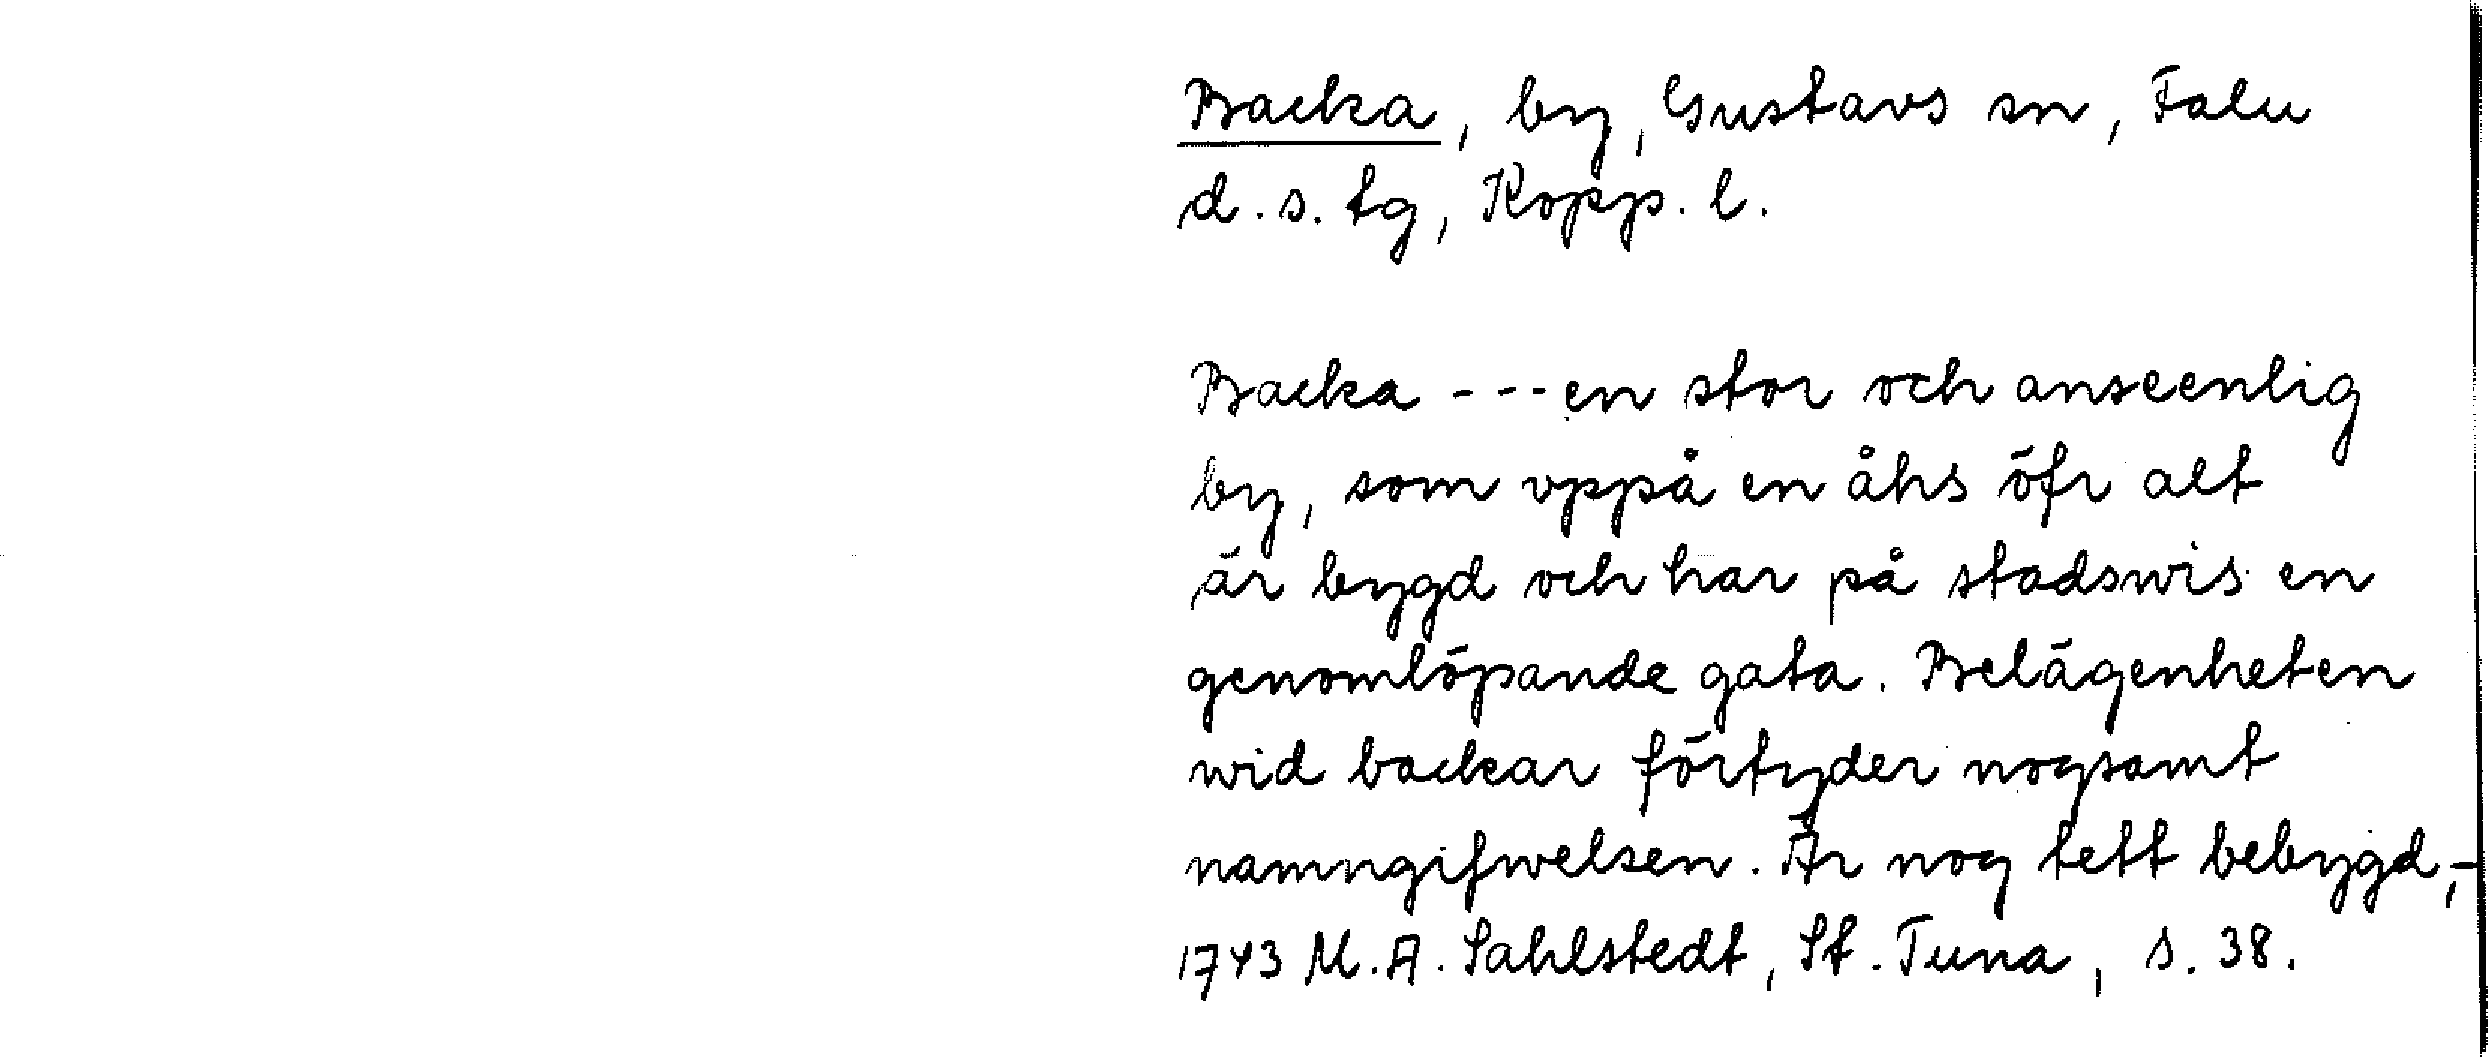 Backa, by, Gustavs sn, Falu
d. s. tg, Kopp. l.
Backa - - - en stor och anseenlig
by, som vppå en åhs öfr alt
är bygd och har på stadswis en
genomlöpande gata. Belägenheten
wid backar förtyder nogsamt
namngifwelsen. Är nog tett bebygd, -
1743 M. A. Sahlstedt, St. Tuna, s. 38.